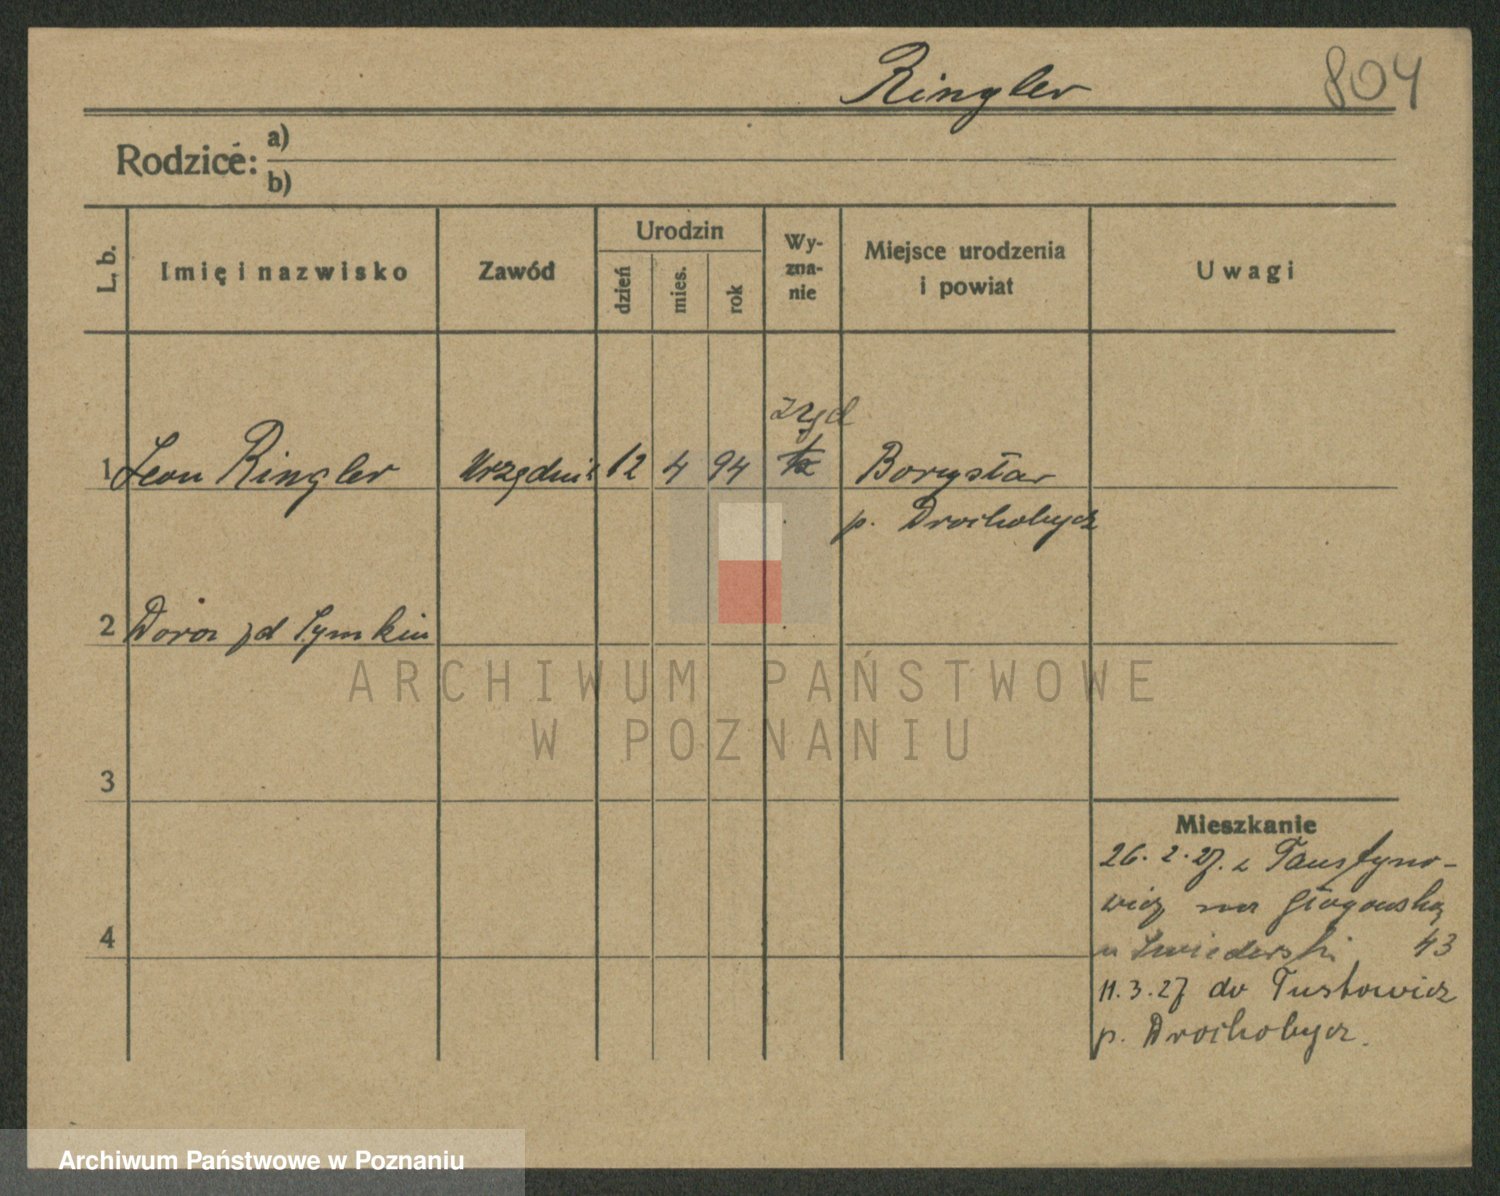 Ringler 804
Rodzice: a)
b)
L. b.
Imię i nazwisko
Zawód
Urodzin
dzień
mies.
rok
Wy-
zna-
nie
Miejsce urodzenia
i powiat
Uwagi
żyd
1 Leon Ringler Urzędnik 12 4 94 Borysław
p. Drohobycz
2 Dora zd Symkin
3
4
Mieszkanie
26. 2. 27. z
na Głogowską
43
11. 3. 27 do Tustowicz
p. Drohobycz.
ARCHIWUM PAŃSTWOWE
W POZNANIU
Archiwum Państwowe w Poznaniu